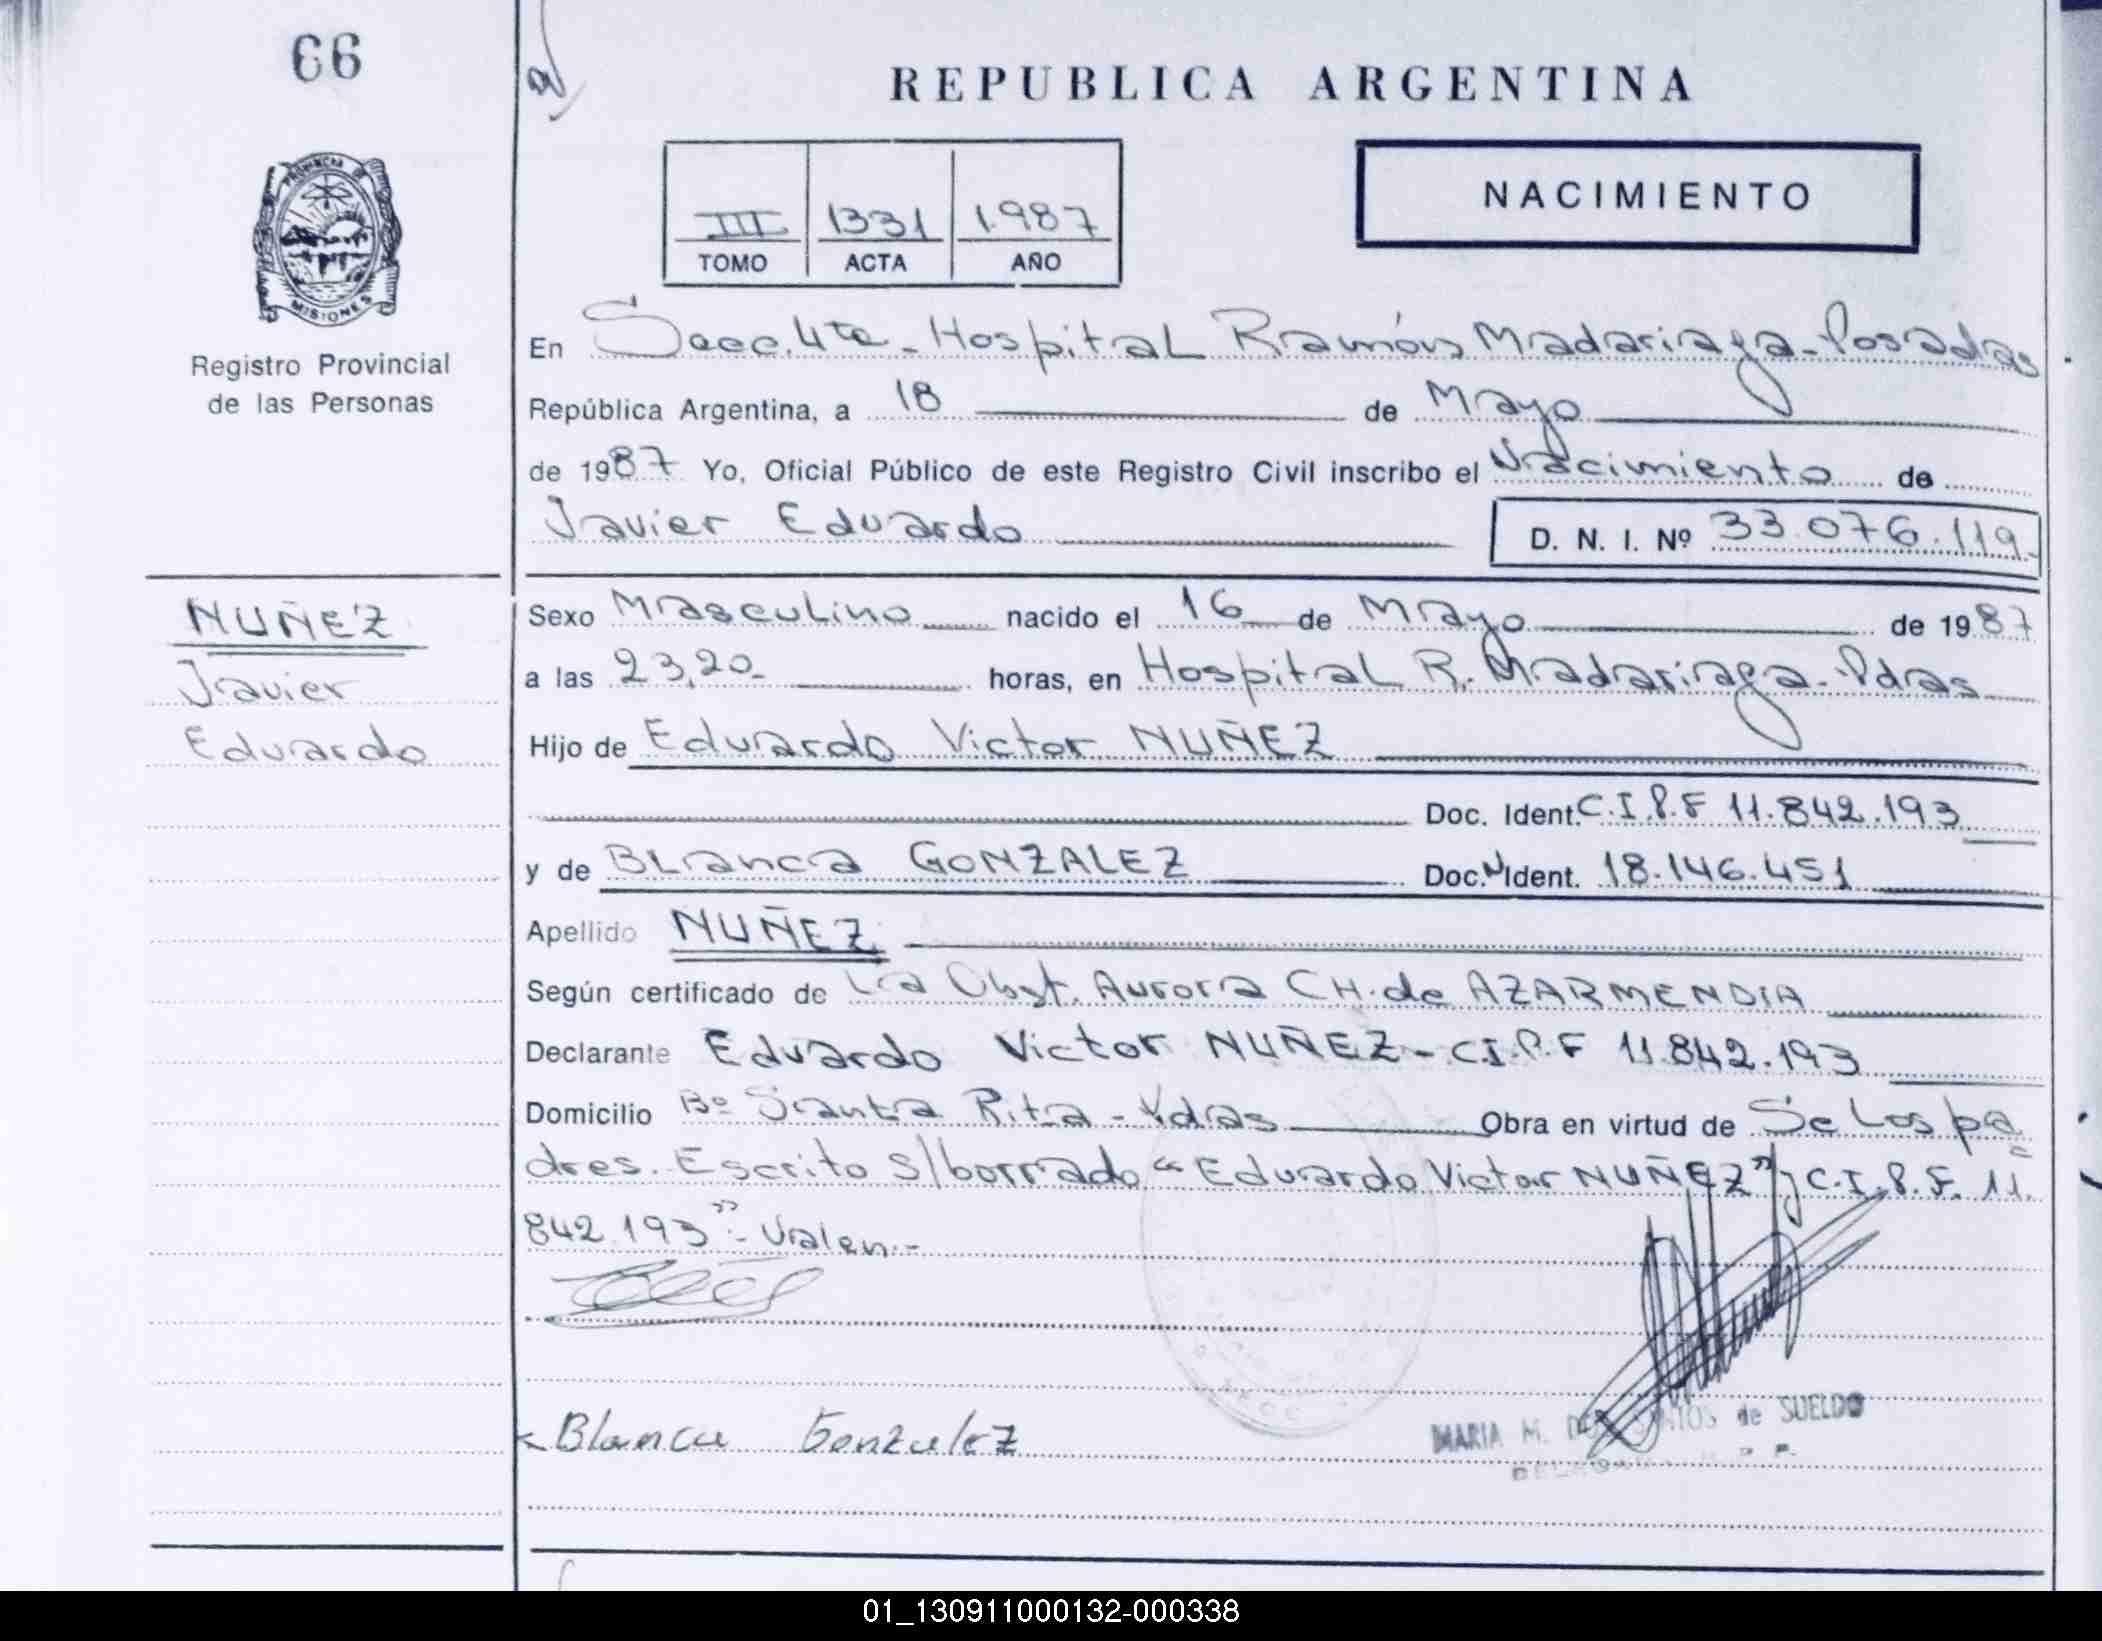 66
REPUBLICA ARGENTINA
III 1331 1.987
TOMO ACTA AÑO
NACIMIENTO
PROVINCIA DE
MISIONES
Registro Provincial
de las Personas
En Secc. 4ta - Hospital Ramón Madariaga - Posadas
República Argentina, a 18 de Mayo
de 1987 Yo, Oficial Público de este Registro Civil inscribo el Nacimiento de
Javier Eduardo D. N. I. Nº 33.076.119.-
NUÑEZ
Javier
Eduardo
Sexo Masculino nacido el 16 de Mayo de 1987
a las 23,20- horas, en Hospital R. Madariaga - Pdas
Hijo de Eduardo Victor NUÑEZ
Doc. Ident. C.I.P.F 11.842.193
y de BLanca GONZALEZ Doc. N Ident. 18.146.451
Apellido NUÑEZ
Según certificado de La Obst. Aurora CH. de AZARMENDIA
Declarante Eduardo Victor NUÑEZ - C.I.P.F 11.842.193
Domicilio Bº Santa Rita - Pdas Obra en virtud de Se Los pa
dres. Escrito s/borrado "Eduardo Victor NUÑEZ" y C.I.P.F. 11.
842.193" - Valen.-
Blanca Gonzalez
MARIA M. DE SANTOS de SUELDO
01_130911000132-000338